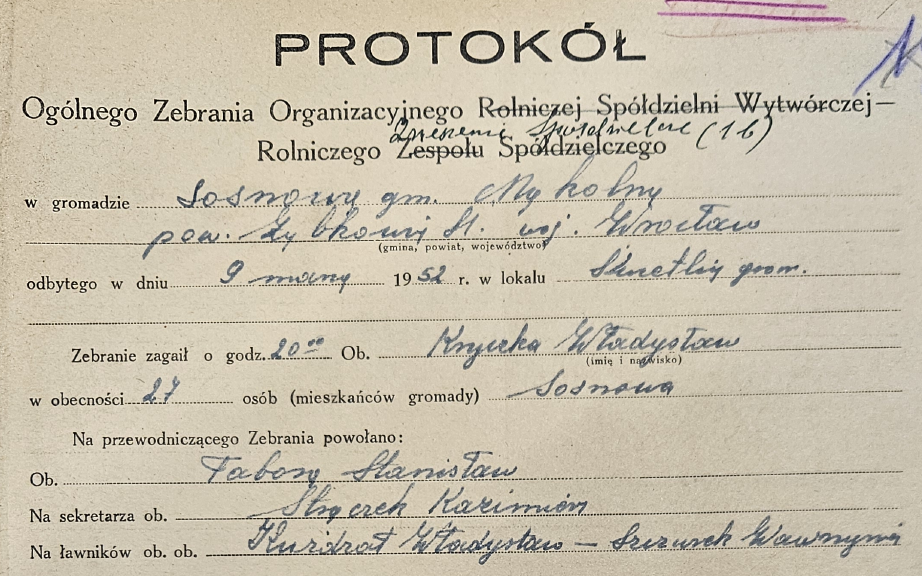 PROTOKÓŁ
Ogólnego Zebrania Organizacyjnego Rolniczej Spółdzielni Wytwórczej
Zrzeszenia Spółdzielcze (1b)
Rolniczego Zespołu Spółdzielczego
w gromadzie Sosnowa gm.
pow. Ząbkowic Śl. woj. Wrocław
(gmina, powiat, województwo)
odbytego w dniu 9 marca 1952 r. w lokalu Świetlicy grom.
Zebranie zagaił o godz. 20⁰⁰ Ob. Władysław
(imię i nazwisko)
w obecności 27 osób (mieszkańców gromady) Sosnowa
Na przewodniczącego Zebrania powołano:
Ob. Stanisław
Na sekretarza ob. Kazimierz
Na ławników ob. ob. Władysław — Szczurek Wawrzyniec